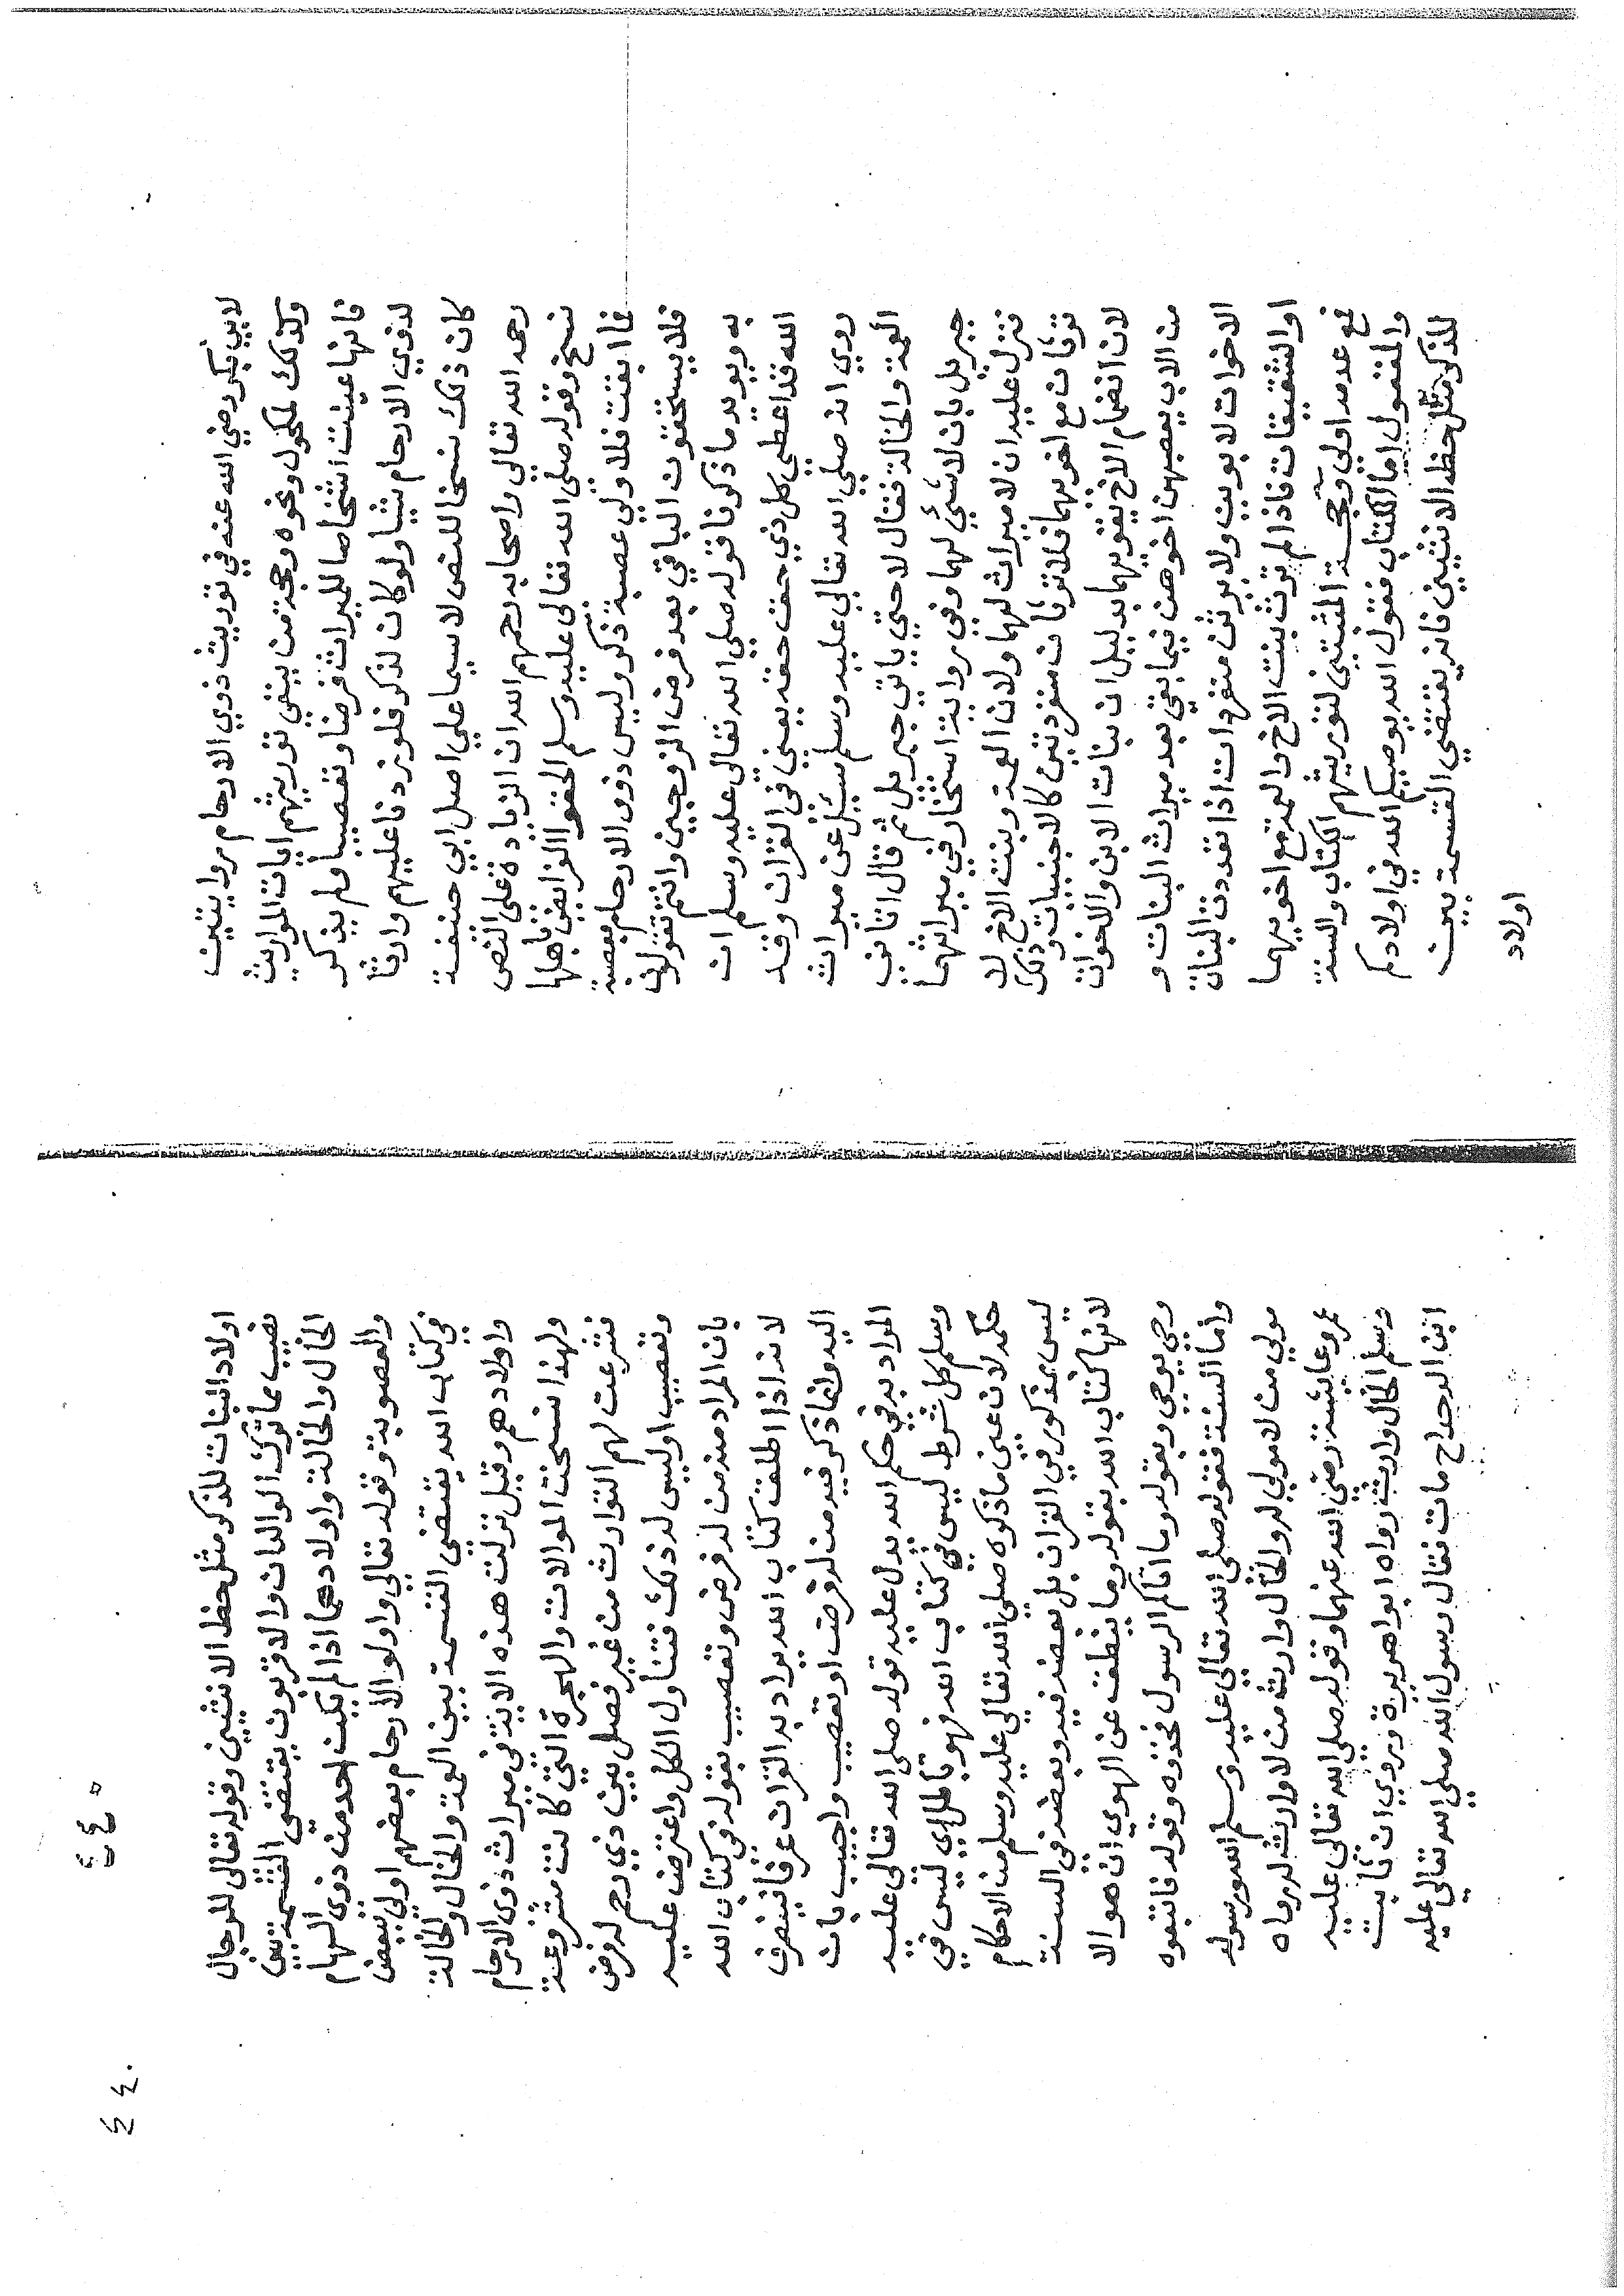 لابي بكر رضي الله عنه في توريث ذوي الارحام روايتين
وكذلك لمكحول ونحوه وحجة من ينفي توريثهم ايات المواريث
فانها عينت اشخاصا للميراث فرضا وتعصيبا ولم يذكر
لذوي الارحام شيا ولو كان لذكر فلو زدنا عليهم وارثا
كان ذلك نسخا للنص لا سيما على اصل ابي حنيفة
رحمه الله تعالي واصحابه رحمهم الله ان الزيادة على النص
نسخ وقوله صلي الله تعالى عليه وسلم الحقوا الفرايض باهلها
فما ابقت فلاولي عصبة ذكر وليس ذوو الارحام بعصبة
فلا يستحقون الباقي بعد فرض الزوجين وانتم تقولون
به ويويد ما ذكرنا قوله صلي الله تعالى عليه وسلم ان
الله قد اعطي كل ذي حق حقه يعني في القران وقد
روي انه صلي الله تعالي عليه وسلم سئل عن ميراث
العمة والخالة فقال لا حتي ياتي جبريل ثم قال اتاني
جبريل بان لا شئ لهما وفي رواية استخار في ميراثهما
فنزل عليه ان لا ميراث لهما ولان العمة وبنت الاخ لا
ترثان مع اخويهما فلا ترثان منفردتين كالاجنبيات وذلك
لان انضمام الاخ يقويهما بدليل ان بنات الابن والاخوات
من الاب يعصبهن اخوهن فيما بقي بعد ميراث البنات و
الاخوات لابوين ولا يرثن منفردات اذا تعددت البنات
او الشقيقات فاذا لم ترث بنت الاخ والعمة مع اخويهما
فمع عدمه اولي وحجة المثبتين لتوريثهم الكتاب والسنة
والمعقول اما الكتاب فقول الله يوصيكم الله في اولادكم
للذكر مثل حظ الانثيين فانه يقتضي القسمة بين
اولاد
اولاد البنات للذكر مثل حظ الانثيين وقوله تعالى للرجال
نصيب مما ترك الوالدان والاقربون يقتضي القسمة بين
الخال والخالة واولادهما اذا لم يكن احد من ذوي السهام
والعصوبة وقوله تعالي واولوا الارحام بعضهم اولي ببعض
في كتاب الله يقتضي القسمة بين العمة والخال والخالة
واولادهم وقيل نزلت هذه الاية في ميراث ذوي الارحام
ولهذا نسخت الموالات والهجرة التي كانت مشروعة
فشرعت لهم التوارث من غير فصل بين ذي رحم له فرض
وتعصيب او ليس له ذلك فتناول الكل واعترض عليه
بان المراد منه من له فرض وتعصيب بقوله في كتاب الله
لانه اذا اطلق كتاب الله يراد به القران عرفا فينصرف
اليه وانما ذكر فيه من له فرض او تعصيب واجيب بان
المراد به في حكم الله يدل عليه قوله صلي الله تعالى عليه
وسلم كل شرط ليس في كتاب الله فهو باطل اي ليس في
حكمه لان عين ما ذكره صلي الله تعالي عليه وسلم من الاحكام
ليس بمذكور في القران بل بعضه فيه وبعضه في السنة
لانها كتاب الله بقوله وما ينطق عن الهوي ان هو الا
وحي يوحي وبقوله وما اتاكم الرسول فخذوه وقوله فاتبعوه
واما السنة فقوله صلي الله تعالي عليه وسلم الله ورسوله
مولي من لا مولي له والخال وارث من لا وارث له رواه
عمرو عايشة رضي الله عنهما وقوله صلي الله تعالي عليه
وسلم الخال وارث رواه ابو هريرة وروي ان ثابت
ابن الدحداح مات فقال رسول الله صلي الله تعالي عليه
٤٤٥
٤٤٠